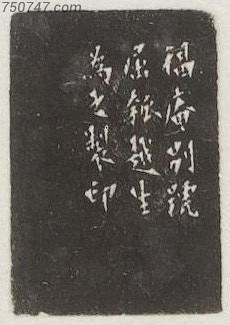 750747.com
福庵別號
屈瓠越生
為之製印